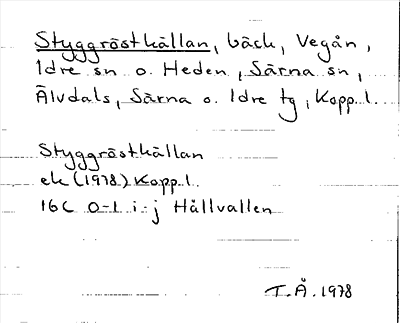 Styggröstkällan, bäck, Vegån,
Idre sn o. Heden, Särna sn,
Älvdals, Särna o. Idre tg, Kopp. l.
Styggröstkällan
ek (1978) Kopp. l.
16C 0-1 i-j Hållvallen
T.Å. 1978